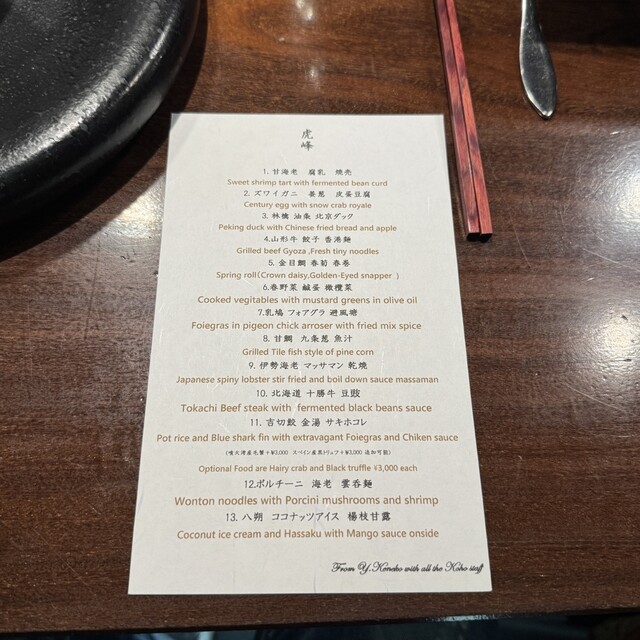 虎
峰
1. 甘海老　腐乳　焼売
Sweet shrimp tart with fermented bean curd
2. ズワイガニ　姜葱　皮蛋豆腐
Century egg with snow crab royale
3. 林檎 油条 北京ダック
Peking duck with Chinese fried bread and apple
4.山形牛 餃子 香港麺
Grilled beef Gyoza ,Fresh tiny noodles
5. 金目鯛 春菊 春巻
Spring roll(Crown daisy,Golden-Eyed snapper )
6.春野菜 鹹蛋 橄欖菜
Cooked vegitables with mustard greens in olive oil
7.乳鳩 フォアグラ 避風塘
Foiegras in pigeon chick arroser with fried mix spice
8. 甘鯛　九条葱 魚汁
Grilled Tile fish style of pine corn
9. 伊勢海老 マッサマン 乾焼
Japanese spiny lobster stir fried and boil down sauce massaman
10. 北海道 十勝牛 豆豉
Tokachi Beef steak with fermented black beans sauce
11. 吉切鮫 金湯 サキホコレ
Pot rice and Blue shark fin with extravagant Foiegras and Chiken sauce
(噴火湾産毛蟹＋¥3,000 スペイン産黒トリュフ＋¥3,000 追加可能)
Optional Food are Hairy crab and Black truffle ¥3,000 each
12.ポルチーニ　海老　雲呑麺
Wonton noodles with Porcini mushrooms and shrimp
13. 八朔　ココナッツアイス　楊枝甘露
Coconut ice cream and Hassaku with Mango sauce onside
From Y.Kaneko with all the Koho staff